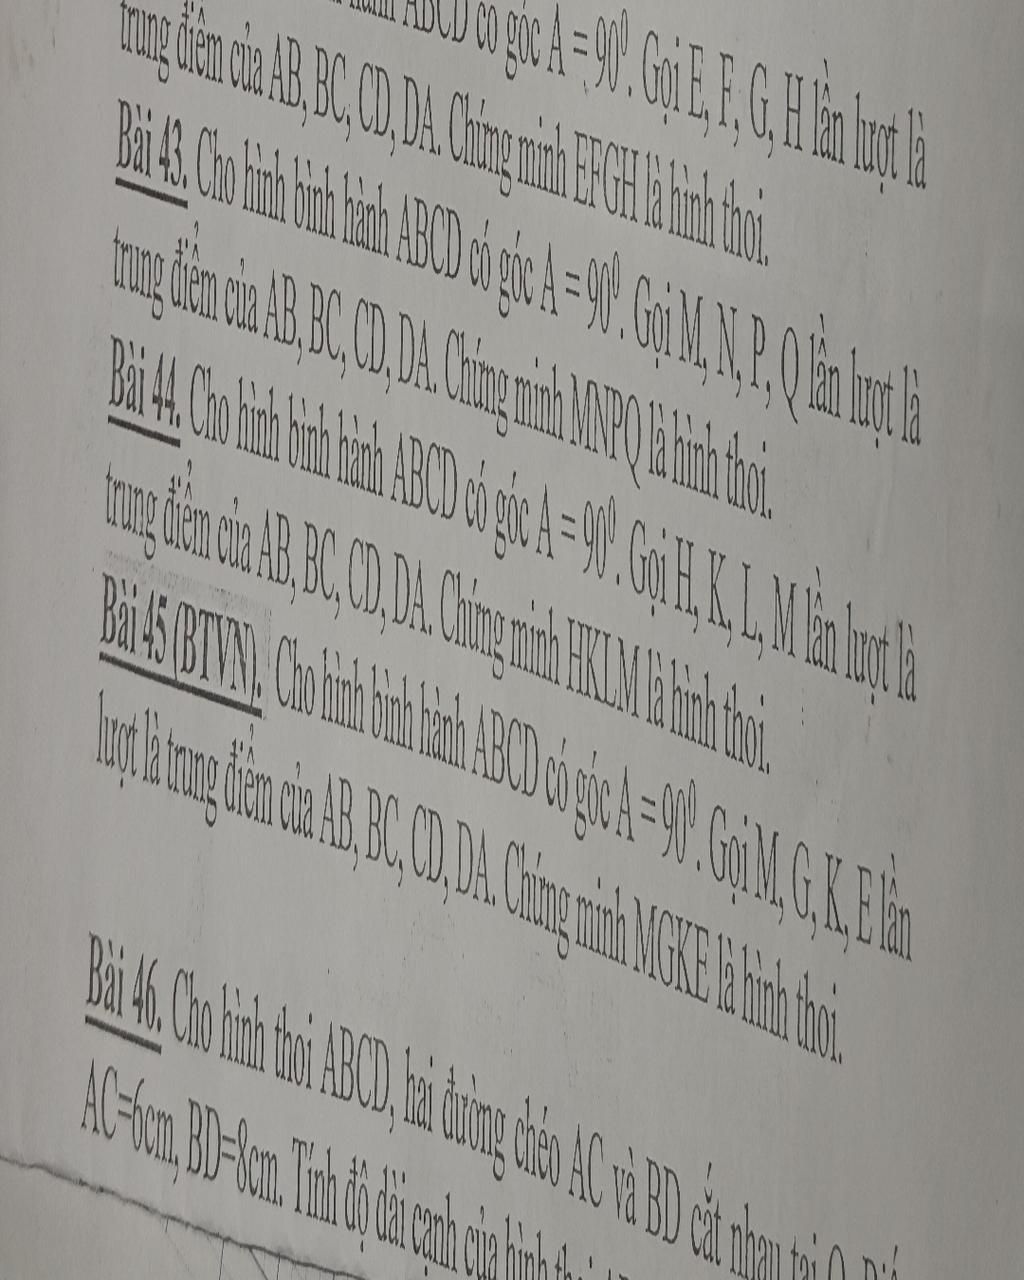 ABCD có góc A = 90⁰. Gọi E, F, G, H lần lượt là
trung điểm của AB, BC, CD, DA. Chứng minh EFGH là hình thoi.
Bài 43. Cho hình bình hành ABCD có góc A = 90⁰. Gọi M, N, P, Q lần lượt là
trung điểm của AB, BC, CD, DA. Chứng minh MNPQ là hình thoi.
Bài 44. Cho hình bình hành ABCD có góc A = 90⁰. Gọi H, K, L, M lần lượt là
trung điểm của AB, BC, CD, DA. Chứng minh HKLM là hình thoi.
Bài 45 (BTVN). Cho hình bình hành ABCD có góc A = 90⁰. Gọi M, G, K, E lần
lượt là trung điểm của AB, BC, CD, DA. Chứng minh MGKE là hình thoi.
Bài 46. Cho hình thoi ABCD, hai đường chéo AC và BD cắt nhau tại O.
AC=6cm, BD=8cm. Tính độ dài cạnh của hình thoi